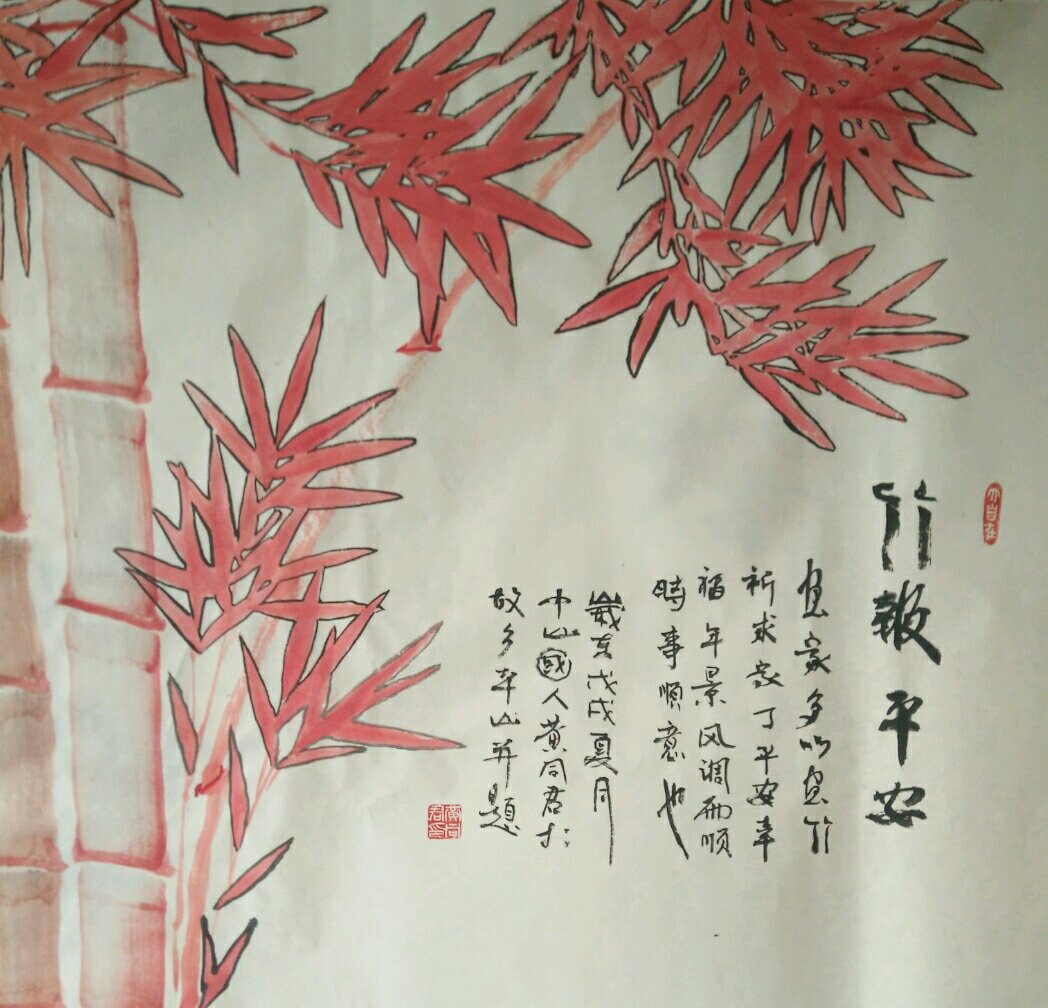 大自在
竹報平安
畫家多以畫竹
祈求家丁平安幸
福年景风调雨顺
時事順意也
歲在戊戌夏月
中山國人黄同君於
故乡平山并題
黄同君印